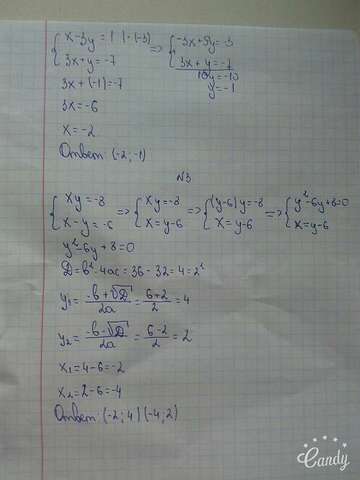 { x-3y=1 | ·(-3) => { -3x+9y=-3
{ 3x+y=-7 { 3x+y=-7
3x+(-1)=-7 10y=-10
3x=-6 y=-1
x=-2
Ответ: (-2;-1)
N3
{ xy=-8 => { xy=-8 => { (y-6)y=-8 => { y²-6y+8=0
{ x-y=-6 { x=y-6 { x=y-6 { x=y-6
y²-6y+8=0
D=b²-4ac=36-32=4=2²
y₁=(-b+√D)/2a=(6+2)/2=4
y₂=(-b-√D)/2a=(6-2)/2=2
x₁=4-6=-2
x₂=2-6=-4
Ответ: (-2;4)(-4;2)
Candy